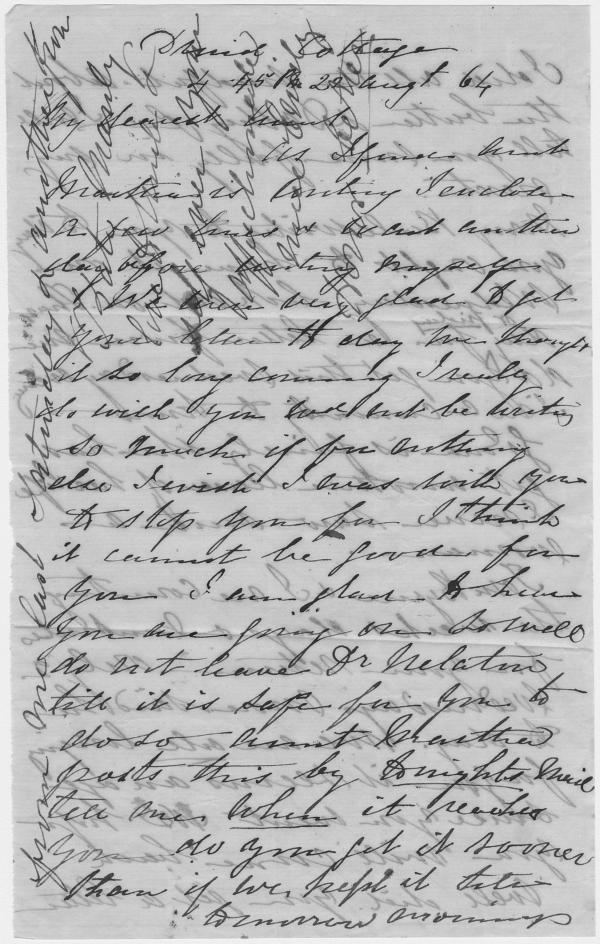 Druid Cottage
4 45 PM 22 Augt 64
My dearest Aunt
As I find Aunt
Martha is writing I enclose
a few lines & want another
day before writing myself
We were very glad to get
your letter to day We thought
it so long coming I really
do wish you would not be writing
so much if for nothing
else I wish I was with you
to stop you for I think
it cannot be good for
you I am glad to hear
you are going on so well
do not leave Dr Nelaton
till it is safe for you to
do so Aunt Martha
posts this by tonights Mail
tell me when it reaches
you do you get it sooner
than if we kept it till
tomorrow morning
from last Saturday